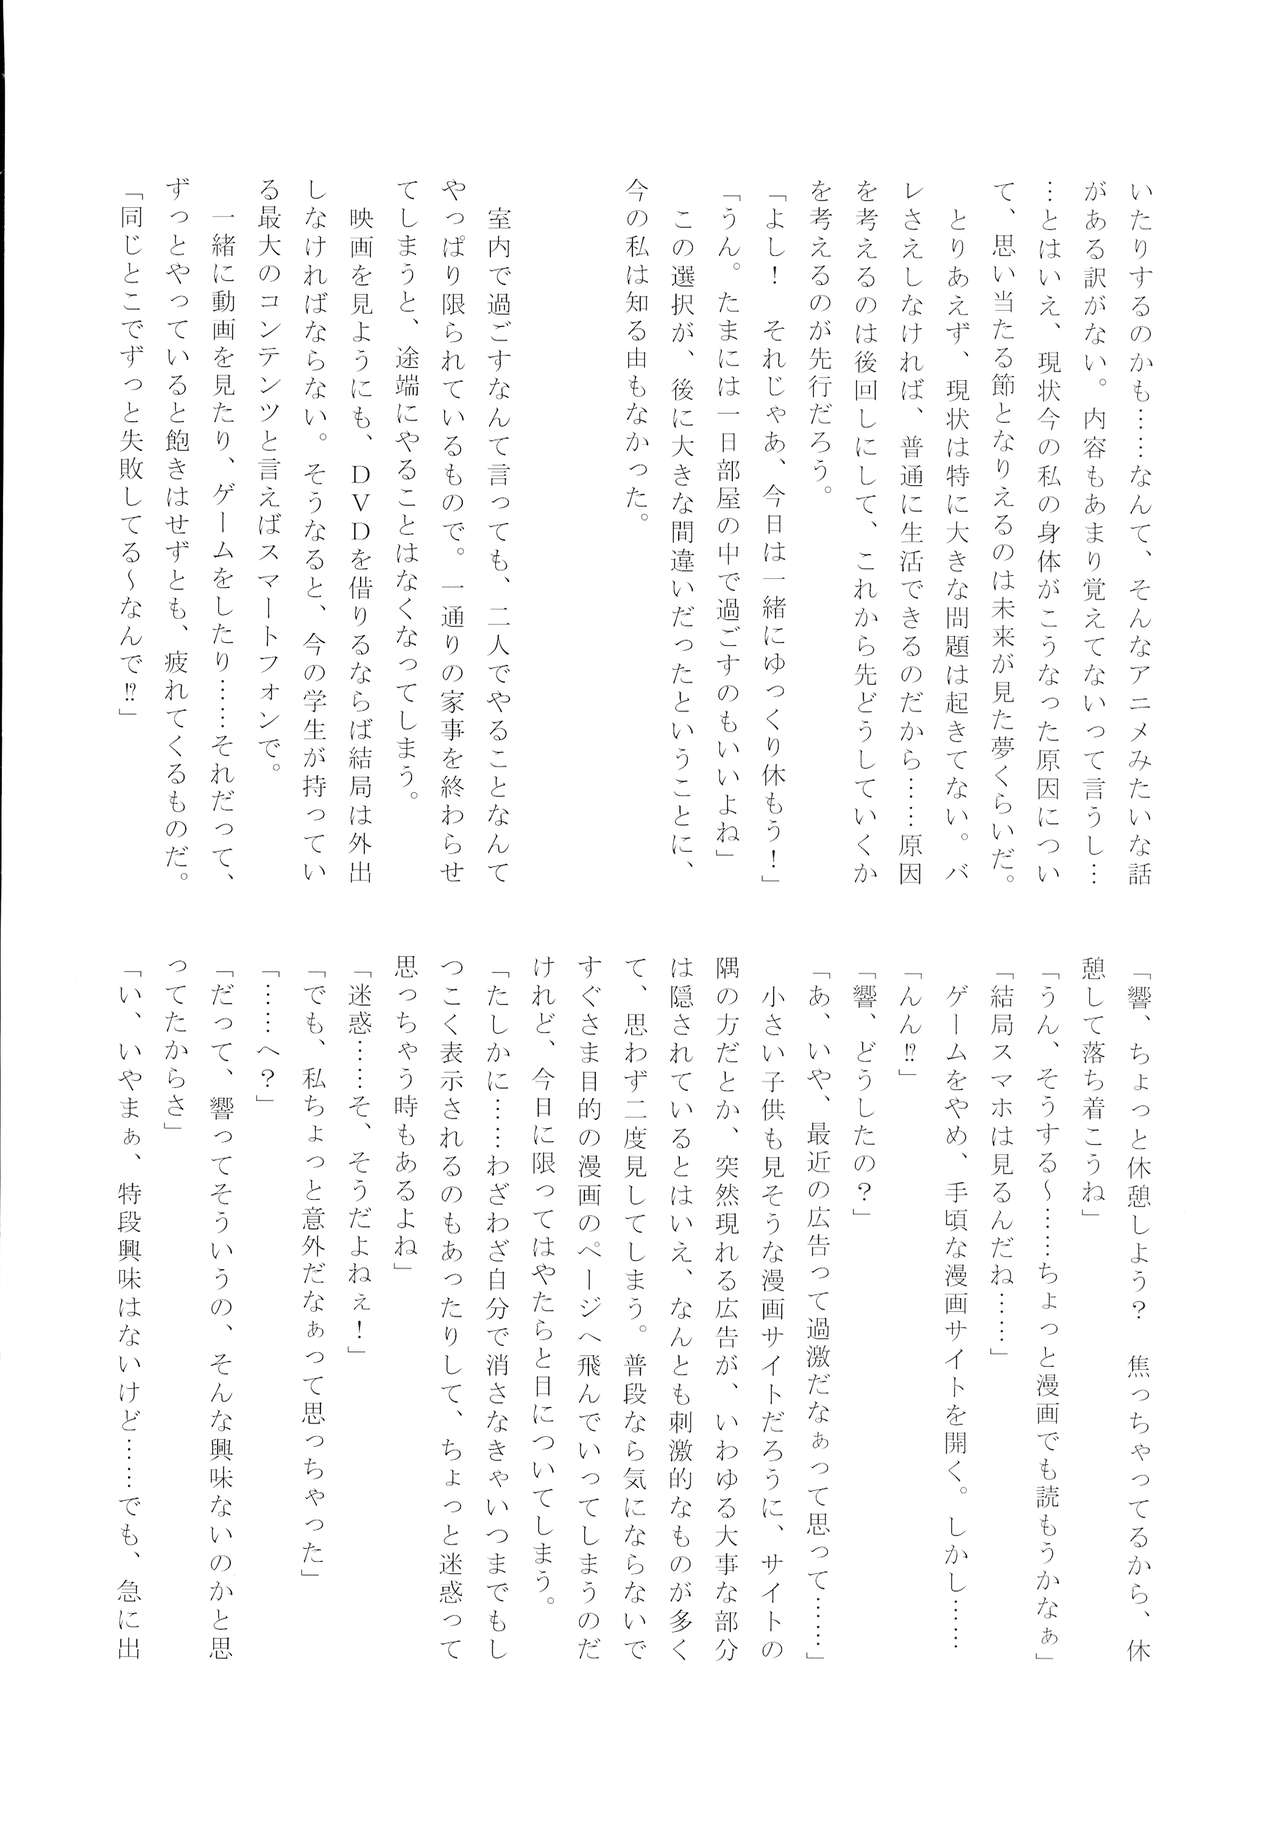 いたりするのかも……なんて、そんなアニメみたいな話
がある訳がない。内容もあまり覚えてないって言うし…
…とはいえ、現状今の私の身体がこうなった原因につい
て、思い当たる節となりえるのは未来が見た夢くらいだ。
　とりあえず、現状は特に大きな問題は起きてない。バ
レさえしなければ、普通に生活できるのだから……原因
を考えるのは後回しにして、これから先どうしていくか
を考えるのが先行だろう。
「よし！　それじゃあ、今日は一緒にゆっくり休もう！」
「うん。たまには一日部屋の中で過ごすのもいいよね」
　この選択が、後に大きな間違いだったということに、
今の私は知る由もなかった。
　室内で過ごすなんて言っても、二人でやることなんて
やっぱり限られているもので。一通りの家事を終わらせ
てしまうと、途端にやることはなくなってしまう。
　映画を見ようにも、ＤＶＤを借りるならば結局は外出
しなければならない。そうなると、今の学生が持ってい
る最大のコンテンツと言えばスマートフォンで。
　一緒に動画を見たり、ゲームをしたり……それだって、
ずっとやっていると飽きはせずとも、疲れてくるものだ。
「同じとこでずっと失敗してる～なんで⁉」
「響、ちょっと休憩しよう？　焦っちゃってるから、休
憩して落ち着こうね」
「うん、そうする～……ちょっと漫画でも読もうかなぁ」
「結局スマホは見るんだね……」
　ゲームをやめ、手頃な漫画サイトを開く。しかし……
「んん⁉」
「響、どうしたの？」
「あ、いや、最近の広告って過激だなぁって思って……」
　小さい子供も見そうな漫画サイトだろうに、サイトの
隅の方だとか、突然現れる広告が、いわゆる大事な部分
は隠されているとはいえ、なんとも刺激的なものが多く
て、思わず二度見してしまう。普段なら気にならないで
すぐさま目的の漫画のページへ飛んでいってしまうのだ
けれど、今日に限ってはやたらと目についてしまう。
「たしかに……わざわざ自分で消さなきゃいつまでもし
つこく表示されるのもあったりして、ちょっと迷惑って
思っちゃう時もあるよね」
「迷惑……そ、そうだよねぇ！」
「でも、私ちょっと意外だなぁって思っちゃった」
「……へ？」
「だって、響ってそういうの、そんな興味ないのかと思
ってたからさ」
「い、いやまぁ、特段興味はないけど……でも、急に出